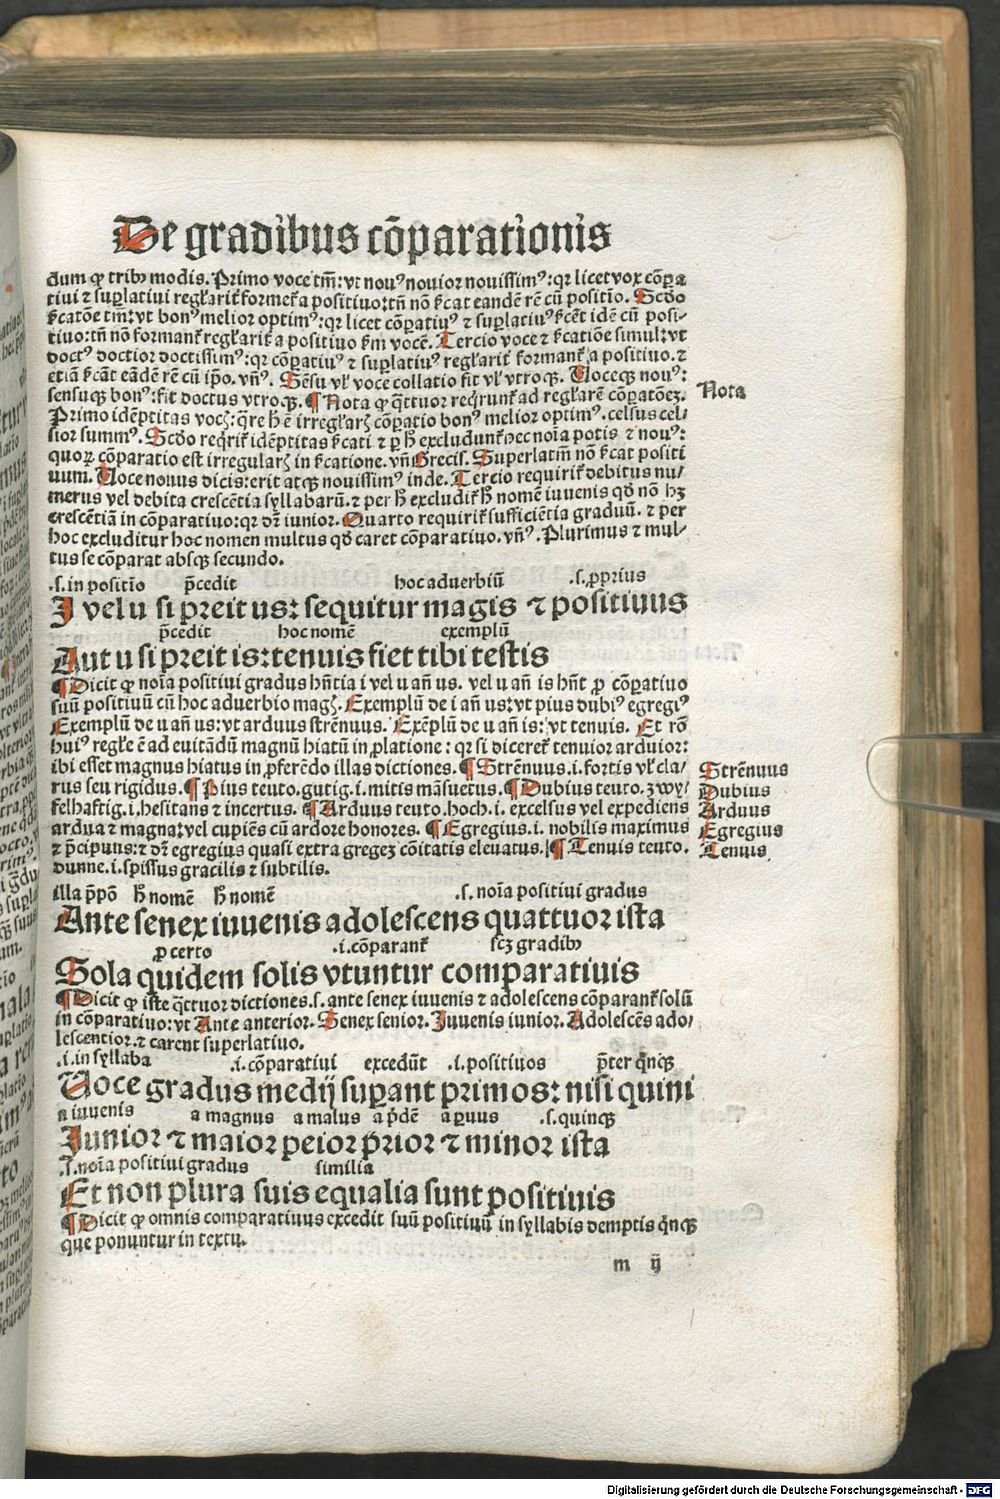 De gradibus cõparationis
dum ꝙ tribꝰ modis. Primo voce tm̃: vt nouꝰ nouior nouissimꝰ: qꝛ licet vox cõpa
tiui ⁊ suplatiui regl'arit' formet' a positiuo: tñ nõ s'cat eandẽ rẽ cũ positio. Scďo
s'catõe tm̃: vt bonꝰ melior optimꝰ: qꝛ licet cõparatiuꝰ ⁊ suplatiuꝰ s'cẽt idẽ cũ posi-
tiuo: tñ nõ formant' regl'arit' a positiuo s'm vocẽ. Tercio voce ⁊ s'catiõe simul: vt
doctꝰ doctior doctissimꝰ: qꝛ cõparatiuꝰ ⁊ suplatiuꝰ regl'arit' formant' a positiuo. ⁊
etiã s'cãt eãdẽ rẽ cũ ip̃o. vñꝰ. Sẽsu vl' voce collatio fit vl' vtroqꝫ. Voceqꝫ nouꝰ:
sensuqꝫ bonꝰ: fit doctus vtroqꝫ. ¶ Nota ꝙ q̃ttuor reqrunt' ad regl'arẽ cõparatõeꝫ.
Nota
Primo idẽptitas vocꝫ: q̃re h̃ ẽ irregl'arꝫ cõpatio bonꝰ melior optimꝰ. celsus cel-
sior summꝰ. Scďo reqrit' idẽptitas s'cati ⁊ p h̃ excludunt' hec noĩa potis ⁊ nouꝰ:
quoꝝ cõparatio est irregularꝫ in s'catione. vñ Grecis. Suplatiũ nõ s'cat positi
uum. Voce nouus dicis: erit atqꝫ nouissimꝰ inde. Tercio requirit' debitus nu-
merus vel debita crescẽtia syllabarũ. ⁊ per h̃ excludit' h̃ nomẽ iuuenis qď nõ hꝫ
crescẽtiã in cõparatiuo: qꝛ dꝛ̃ iunior. Quarto requirit' sufficiẽtia graduũ. ⁊ per
hoc excluditur hoc nomen multus qď caret cõparatiuo. vñꝰ. Plurimus ⁊ mul-
tus se cõparat absqꝫ secundo.
.s. in positio p̃cedit hoc aduerbiũ .s. ꝓprius
I vel u si preit us: sequitur magis ⁊ positiuus
p̃cedit hoc nomẽ exemplũ
Aut u si preit is: tenuis fiet tibi testis
¶ Dicit ꝙ noĩa positiui gradus hñtia i vel u añ us. vel u añ is hñt ꝓ cõparatiuo
suũ positiuũ cũ hoc aduerbio magꝫ. Exemplũ de i añ us: vt pius dubiꝰ egregiꝰ
Exemplũ de u añ us: vt arduus strẽnuus. Exẽplũ de u añ is: vt tenuis. Et rõ
huiꝰ regl'e ẽ ad euitãdũ magnũ hiatũ in ꝓlatione: qꝛ si diceret' tenuior arduior:
ibi esset magnus hiatus in ꝓferẽdo illas dictiones. ¶ Strẽnuus .i. fortis vl' cla-
rus seu rigidus. ¶ Pius teuto. gutig .i. mitis mãsuetus. ¶ Dubius teuto. zwy-
felhaftig .i. hesitans ⁊ incertus. ¶ Arduus teuto. hoch .i. excelsus vel expediens
ardua ⁊ magna: vel cupiẽs cũ ardore honores. ¶ Egregius .i. nobilis maximus
⁊ p̃cipuus: ⁊ dꝛ̃ egregius quasi extra gregeꝫ cõitatis eleuatus. ¶ Tenuis teuto.
dunne .i. spissus gracilis ⁊ subtilis.
Strẽnuus
Dubius
Arduus
Egregius
Tenuis
illa p̃põ h̃ nomẽ h̃ nomẽ .s. noĩa positiui gradus
Ante senex iuuenis adolescens quattuor ista
ꝓ certo .i. cõparant' scꝫ gradibꝰ
Sola quidem solis vtuntur comparatiuis
¶ Dicit ꝙ iste q̃ttuor dictiones .s. ante senex iuuenis ⁊ adolescens cõparant' solũ
in cõparatiuo: vt Ante anterior. Senex senior. Iuuenis iunior. Adolescẽs ado-
lescentior. ⁊ carent superlatiuo.
.i. in syllaba .i. cõparatiui excedũt .i. positiuos p̃ter q̃nqꝫ
Voce gradus medij supant primos: nisi quini
a iuuenis a magnus a malus a p̃dẽ a puus .s. quinqꝫ
Iunior ⁊ maior peior prior ⁊ minor ista
.s. noĩa positiui gradus similia
Et non plura suis equalia sunt positiuis
¶ Dicit ꝙ omnis comparatiuus excedit suũ positiuũ in syllabis demptis q̃nqꝫ
que ponuntur in textu.
m ij
Digitalisierung gefördert durch die Deutsche Forschungsgemeinschaft - DFG